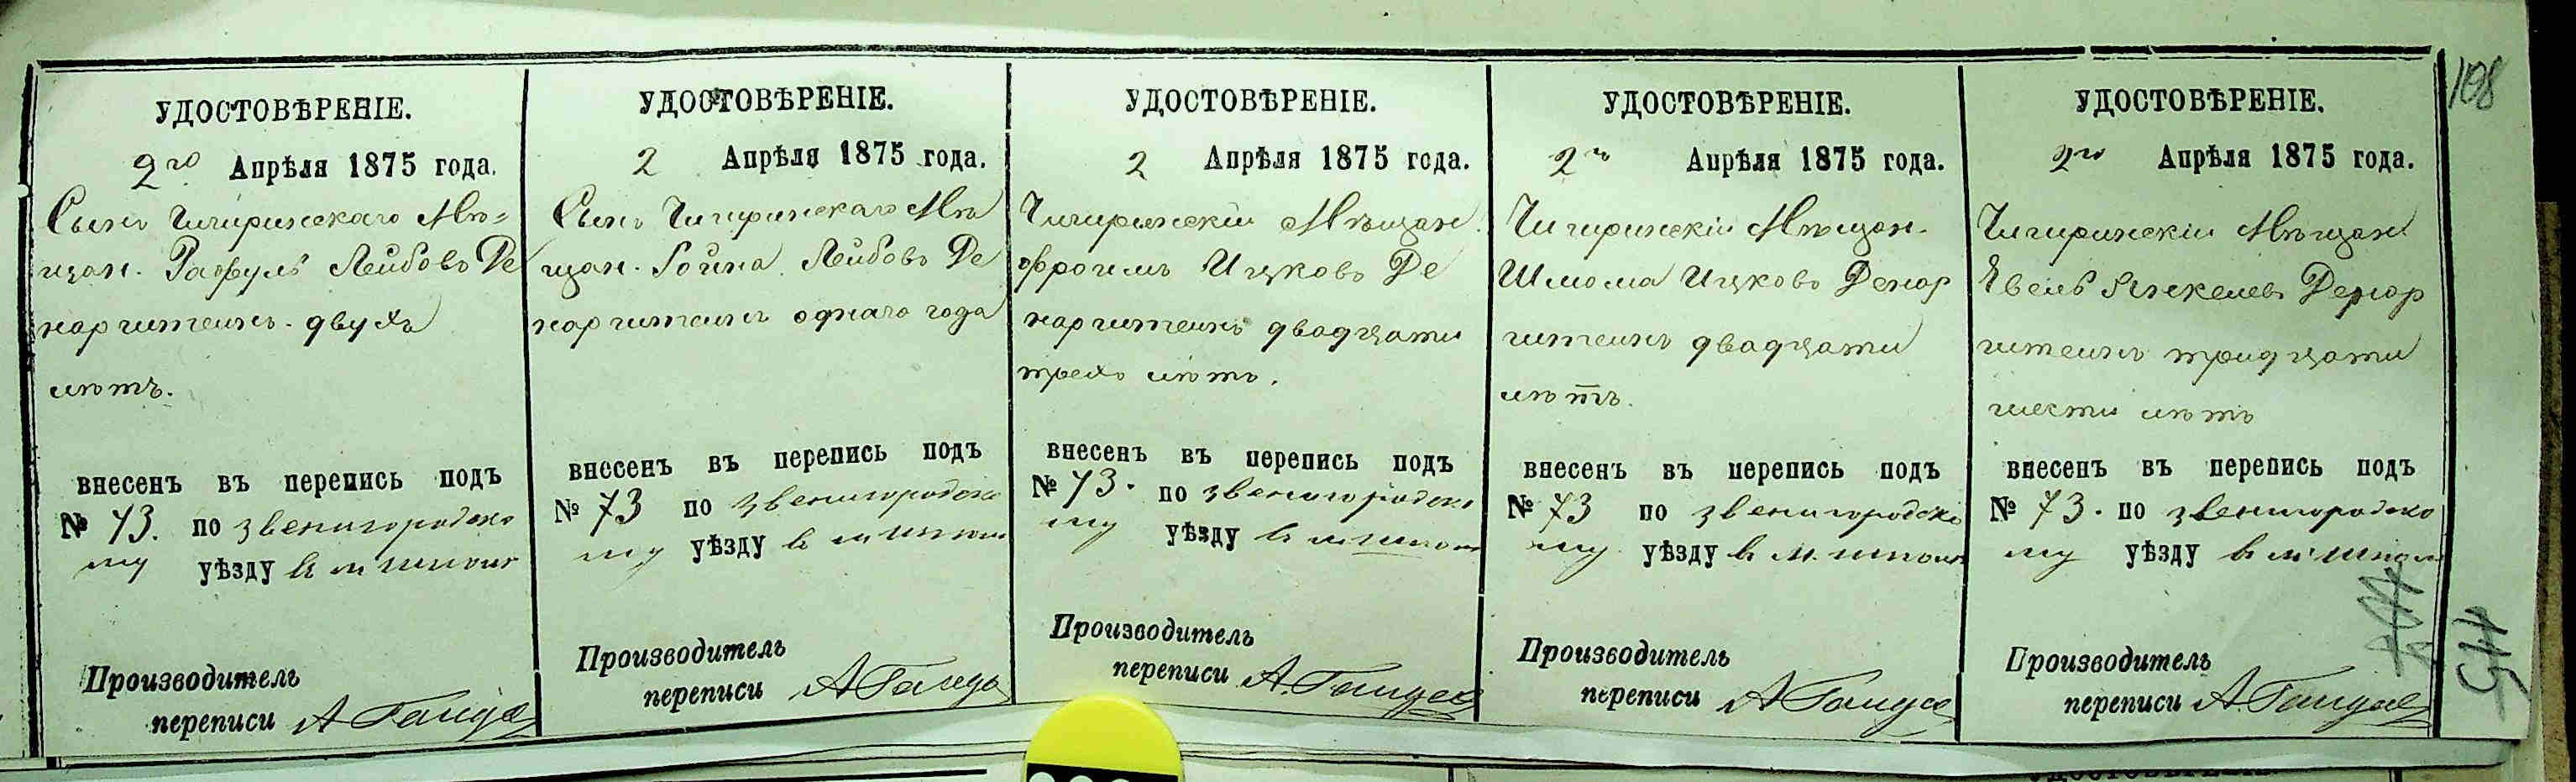 108
УДОСТОВѢРЕНІЕ.
2го Апрѣля 1875 года.
Сынъ Чигиринскаго Мѣ=
щан. Рафулъ Лейбовъ Де
наргитейнъ. двухъ
лѣтъ.
внесенъ въ перепись подъ
№ 73. по звенигородско
му уѣзду в м шпол
Производитель
переписи А
УДОСТОВѢРЕНІЕ.
2 Апрѣля 1875 года.
Сынъ Чигиринскаго Мѣ
щан. Лейбовъ Де
наргитейнъ одного года
внесенъ въ перепись подъ
№ 73 по звенигородско
му уѣзду в м шпол
Производитель
переписи А
УДОСТОВѢРЕНІЕ.
2 Апрѣля 1875 года.
Чигиринскій Мѣщан.
Фроимъ Ицковъ Де
наргитейнъ двадцати
трехъ лѣтъ.
внесенъ въ перепись подъ
№ 73. по звенигородско
му уѣзду в м шпол
Производитель
переписи А.
УДОСТОВѢРЕНІЕ.
2го Апрѣля 1875 года.
Чигиринскій Мѣщан.
Шлома Ицковъ Денар
гитейнъ двадцати
лѣтъ.
внесенъ въ перепись подъ
№ 73 по звенигородско
му уѣзду в м. шпол
Производитель
переписи А
УДОСТОВѢРЕНІЕ.
2го Апрѣля 1875 года.
Чигиринскій Мѣщан
Янкелевъ Денар
гитейнъ тридцати
шести лѣтъ
внесенъ въ перепись подъ
№ 73. по звенигородско
му уѣзду в м. шпол
Производитель
переписи А.